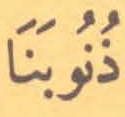 ذُنُوبَنَا